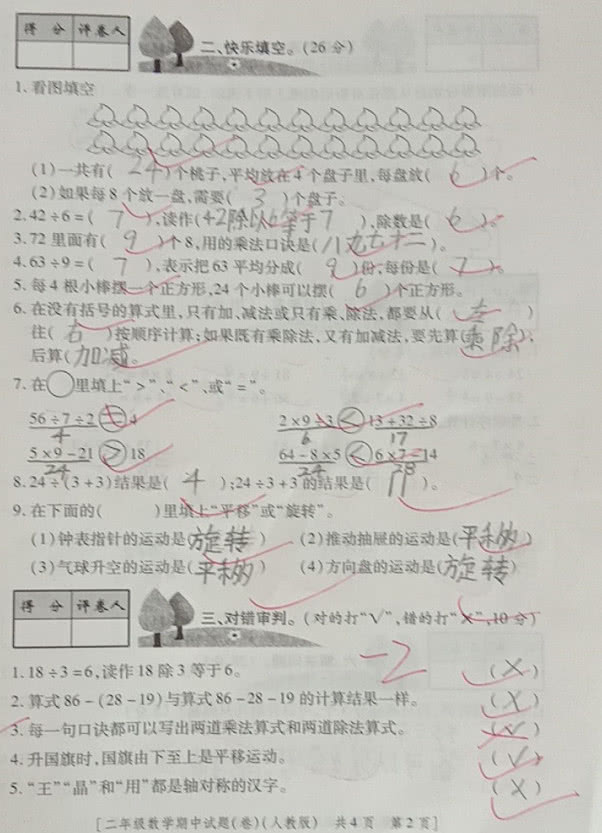 得 分 评卷人
二、快乐填空。(26 分)
1. 看图填空
(1)一共有( 24 )个桃子,平均放在 4 个盘子里,每盘放( 6 )个。
(2)如果每 8 个放一盘,需要( 3 )个盘子。
2. 42÷6=( 7 ),读作(42除以6等于7),除数是( 6 )。
3. 72 里面有( 9 )个 8,用的乘法口诀是(八九七十二)。
4. 63÷9=( 7 ),表示把 63 平均分成( 9 )份,每份是( 7 )。
5. 每 4 根小棒摆一个正方形,24 个小棒可以摆( 6 )个正方形。
6. 在没有括号的算式里,只有加、减法或只有乘、除法,都要从( 左 )
往( 右 )按顺序计算;如果既有乘除法,又有加减法,要先算(乘除),
后算(加减)。
7. 在○里填上“>”、“<”、或“=”。
56÷7÷2 = 4 2×9÷3 < 13+32÷8
4 6 17
5×9-21 > 18 64-8×5 < 6×7-14
24 24 28
8. 24÷(3+3)结果是( 4 );24÷3+3 的结果是( 11 )。
9. 在下面的( )里填上“平移”或“旋转”。
(1)钟表指针的运动是(旋转) (2)推动抽屉的运动是(平移)
(3)气球升空的运动是(平移) (4)方向盘的运动是(旋转)
得 分 评卷人
三、对错审判。(对的打“√”,错的打“×”,10 分)
-2
1. 18÷3=6,读作 18 除 3 等于 6。 (×)
2. 算式 86-(28-19)与算式 86-28-19 的计算结果一样。 (×)
3. 每一句口诀都可以写出两道乘法算式和两道除法算式。 (√)
4. 升国旗时,国旗由下至上是平移运动。 (√)
5. “王”“晶”和“用”都是轴对称的汉字。 (×)
[二年级数学期中试题(卷)(人教版) 共 4 页 第 2 页]